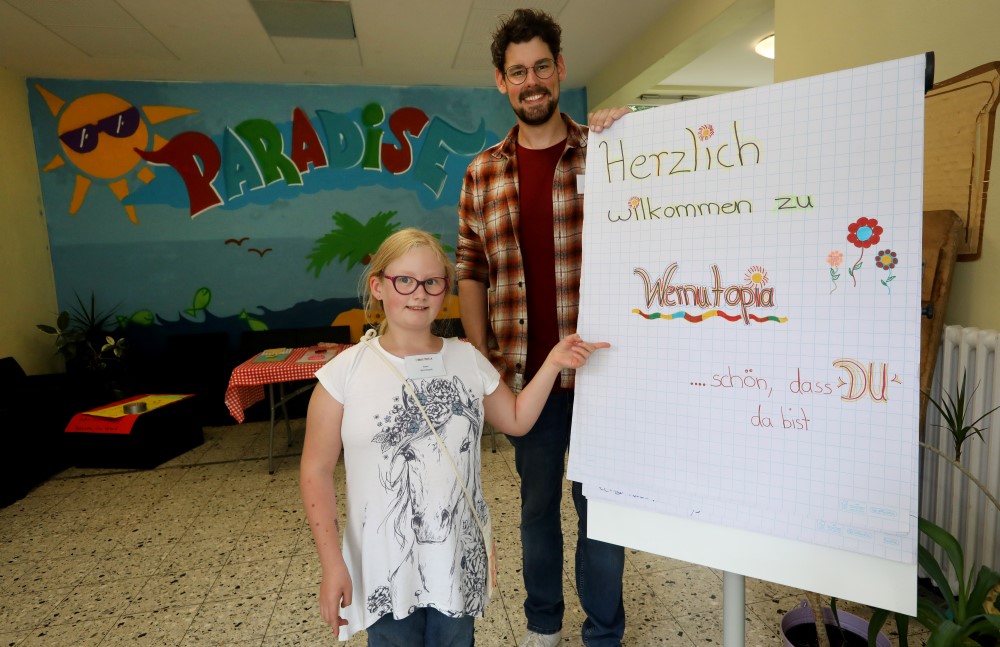 PARADiSE
Herzlich
willkommen zu
Wernutopia
.... schön, dass DU
da bist